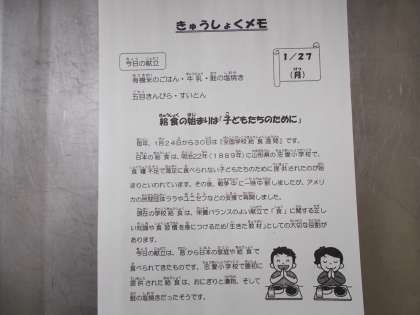 きゅうしょくメモ
1/27
(月)
今日の献立
有機米のごはん・牛乳・鮭の塩焼き
五目きんぴら・すいとん
給食の始まりは「子どもたちのために」
毎年、1月24日から30日は『全国学校給食週間』です。
日本の給食は、明治22年(1889年)に山形県の忠愛小学校で、
食糧不足で満足に食べられない子どもたちのために提供されたのが始
まりといわれています。その後、戦争中に一時中断しましたが、アメリ
カの民間団体ララやユニセフなどの支援で再開しました。
現在の学校給食は、栄養バランスのよい献立で「食」に関する正し
い知識や食習慣を身につけるため「生きた教材」としての大切な役割が
あります。
今日の献立は、昔から日本の家庭や給食で
食べられてきたものです。忠愛小学校で最初に
提供された給食は、おにぎりと漬物、そして
鮭の塩焼きだったそうです。